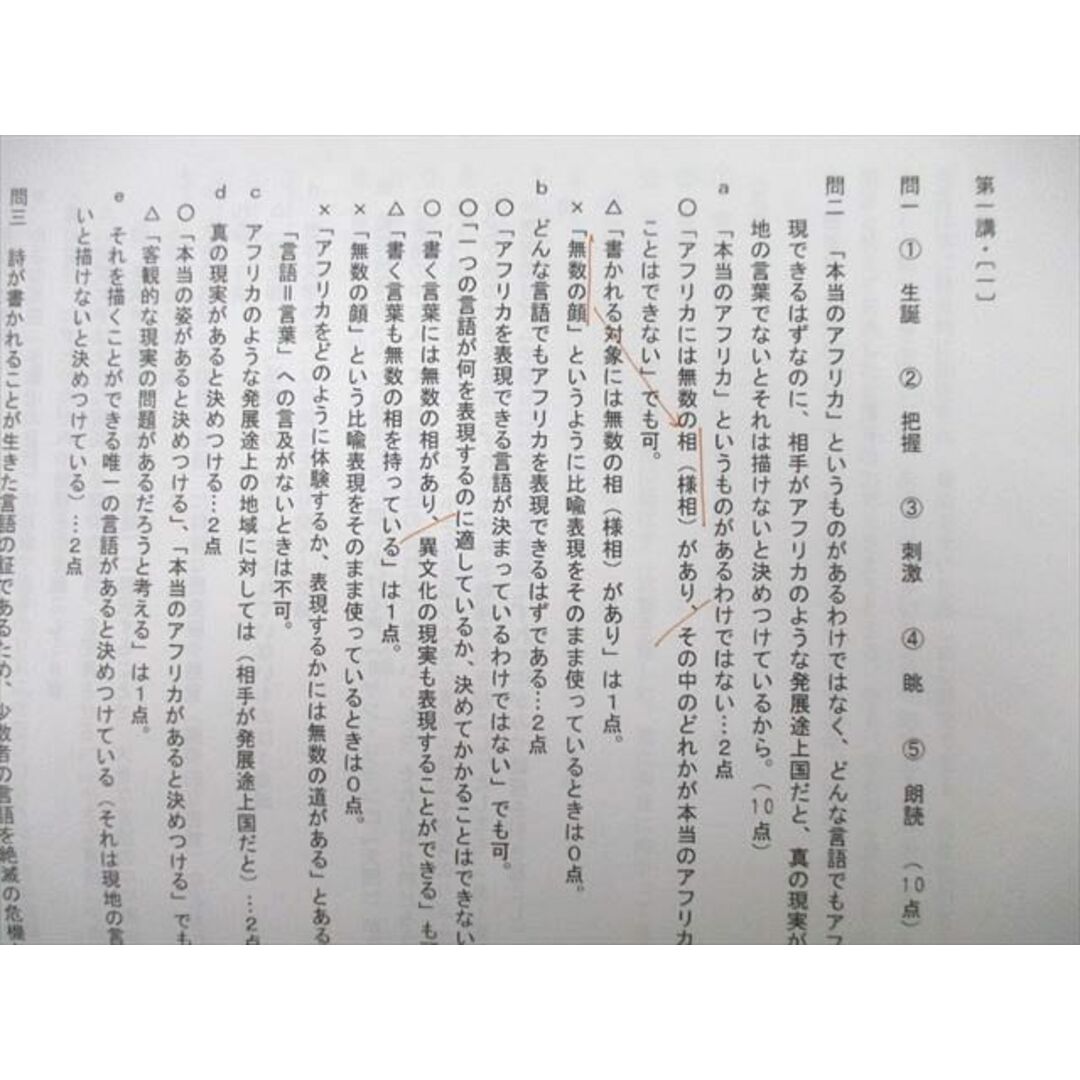 第一講・〔一〕
問一 ① 生誕 ② 把握 ③ 刺激 ④ 眺 ⑤ 朗読 (10点)
問二 「本当のアフリカ」というものがあるわけではなく、どんな言語でもアフ
現できるはずなのに、相手がアフリカのような発展途上国だと、真の現実が
地の言葉でないとそれは描けないと決めつけているから。(10点)
a 「本当のアフリカ」というものがあるわけではない…2点
〇「アフリカには無数の相(様相)があり、その中のどれかが本当のアフリカ
ことはできない」でも可。
△「書かれる対象には無数の相(様相)があり」は1点。
×「無数の顔」というように比喩表現をそのまま使っているときは0点。
b どんな言語でもアフリカを表現できるはずである…2点
〇「アフリカを表現できる言語が決まっているわけではない」でも可。
〇「一つの言語が何を表現するのに適しているか、決めてかかることはできない
〇「書く言葉には無数の相があり、異文化の現実も表現することができる」も
△「書く言葉も無数の相を持っている」は1点。
×「無数の顔」という比喩表現をそのまま使っているときは0点。
×「アフリカをどのように体験するか、表現するかには無数の道がある」とある
「言語=言葉」への言及がないときは不可。
c アフリカのような発展途上の地域に対しては(相手が発展途上国だと)…2点
d 真の現実があると決めつける…2点
〇「本当の姿があると決めつける」、「本当のアフリカがあると決めつける」でも
△「客観的な現実の問題があるだろうと考える」は1点。
e それを描くことができる唯一の言語があると決めつけている(それは現地の言
いと描けないと決めつけている)…2点
問三 詩が書かれることが生きた言語の証であるため、少数者の言語を絶滅の危機